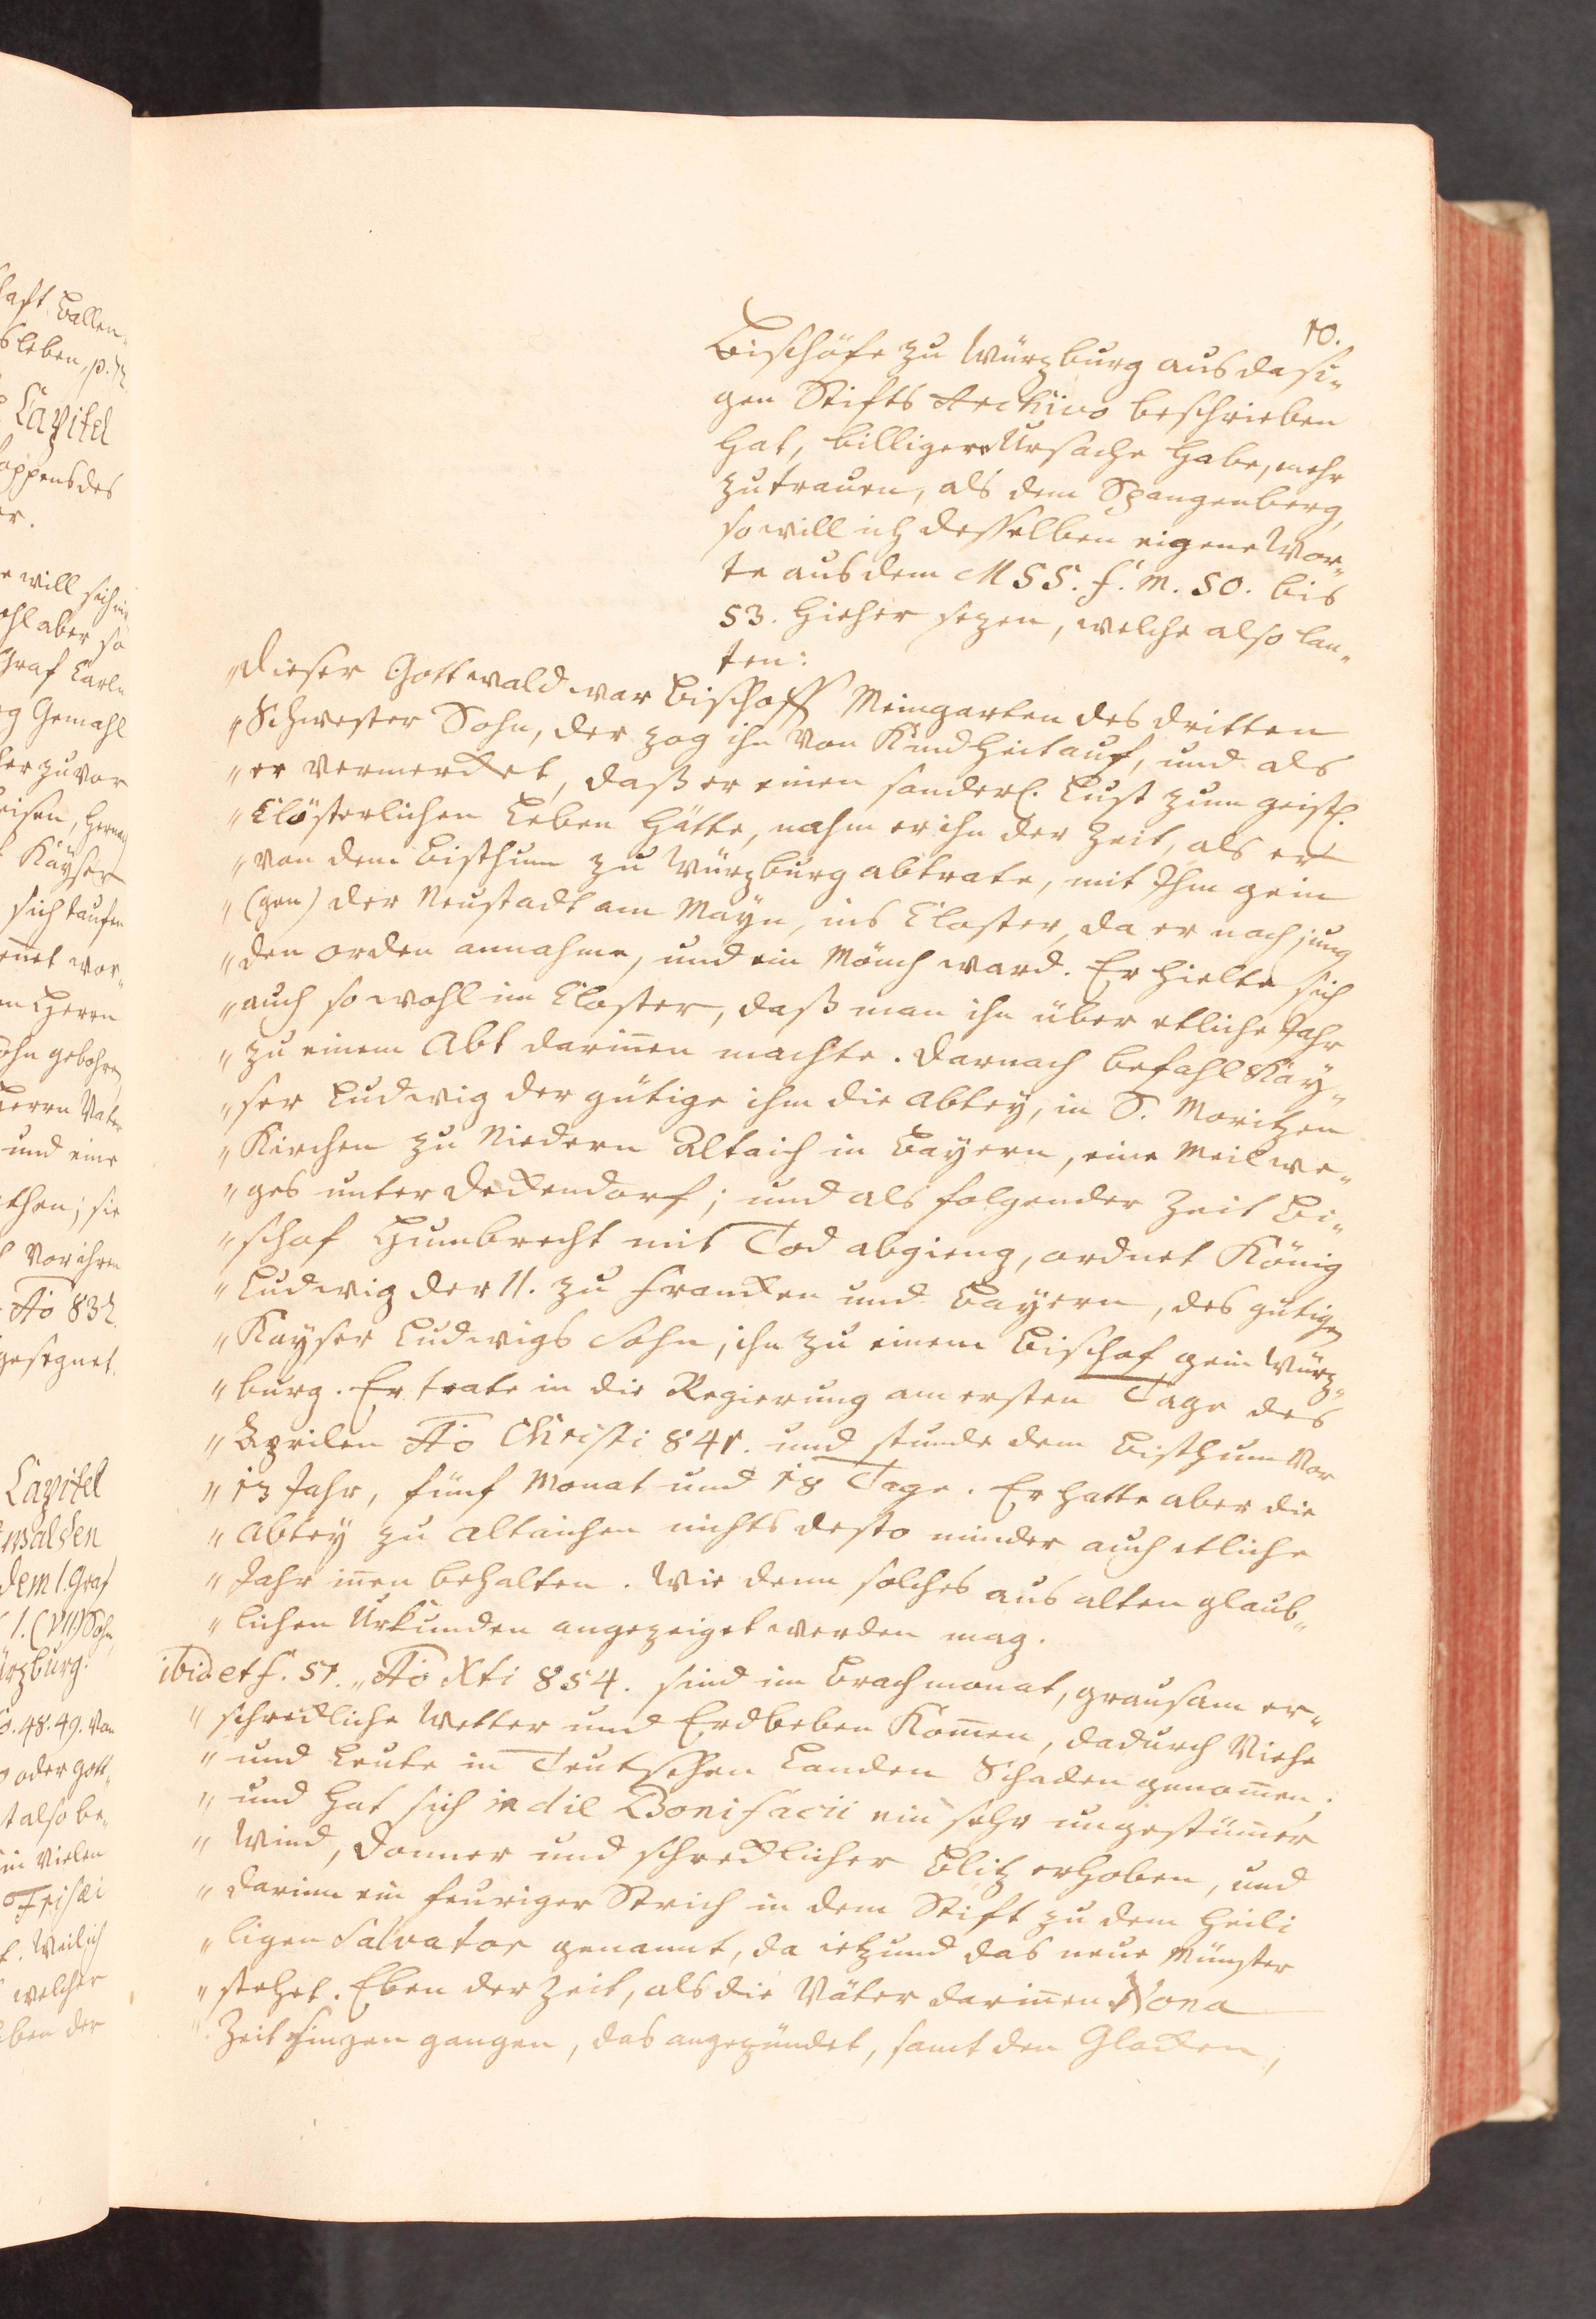 10.
Bischöfe zu Würzburg aus dasi-
gen Stifts Archivo beschrieben
hat, billigere Ursache habe, mehr
zutrauen, als dem Spangenberg,
so will ich desselben eigene Wor-
te aus dem MSS. f. m. 50. bis
53. hieher sezen, welche also lau-
ten:
"Dieser Gottwald war Bischoff Meingarten des dritten
"Schwester Sohn, der zog ihn von Kindheit auf, und als
"er vermercket, daß er einen sonderl. Lust zum geistl.
"Clösterlichen Leben hätte, nahm er ihn der Zeit, als er
"von dem Bisthum zu Würzburg abtrate, mit Ihm gein
"(gen) der Neustadt am Mayn, ins Closter, da er noch jung
"den orden annahme, und ein Mönch ward. Er hielte sich
"auch so wohl im Closter, daß man ihn über etliche Jahr
"zu einem Abt darinnen machte. Darnach befahl Käy-
"ser Ludwig der gütige ihm die Abtey, in S. Moritzen
"Kirchen zu Niedern Altaich in Bayern, eine Meil we-
"ges unter Deckendorf; und als folgender Zeit Bi-
"schof Humbrecht mit Tod abgieng, ordnet König
"Ludwig der II. zu Francken und Bayern, des gütigen
"Kayser Ludwigs Sohn, ihn zu einem Bischof gein Würz-
"burg. Er trate in die Regierung am ersten Tage des
"Aprilen Ao Christi 841. und stunde dem Bisthum vor
"13 Jahr, fünf Monat und 18 Tage. Er hatte aber die
"Abtey zu Altaichen nichts desto minder auch etliche
"Jahr innen behalten. Wie denn solches aus alten glaub-
"lichen Urkunden angezeiget werden mag.
ibid et f. 51. "Ao Xti 854. sind im Brachmonat, grausam er-
"schreckliche Wetter und Erdbeben Kommen, dadurch Viehe
"und Leute in Teutschen Landen Schaden genommen;
"und hat sich in die Bonifacii ein sehr ungestümmer
"Wind, Donner und schrecklicher Blitz erhoben, und
"darinn ein feuriger Strich in dem Stift zu dem Heili
"ligen Salvator genannt, da ietzund das neue Münster
"stehet. Eben der Zeit, als die Väter darinnen Nona
"Zeit singen gangen, das angezündet, samt den Glocken,